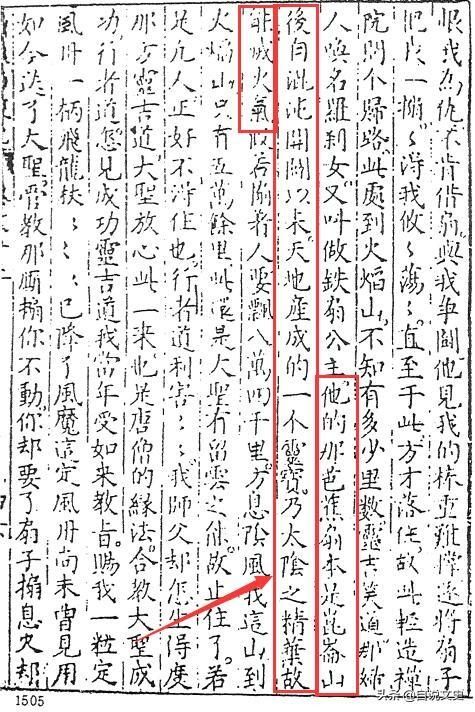 恨我為仇不肯借扇與我爭鬪他見我的棒重難撑遂將扇子
把我一搧〻得我攸〻蕩〻直至于此方才落住故此輕造禪
院問个歸路此處到火焰山不知有多少里數靈吉笑道那婦
人喚名羅剎女又叫做鉄扇公主他的那芭蕉扇本是崑崙山
後自混沌開闢以來天地産成的一个靈寶乃太陰之精葉故
能滅火氣假若搧着人要飄八萬四千里方息陰風我這山到
火焰山只有五萬餘里此還是大聖有留雲之能故止住了若
是凡人正好不得住也行者道利害〻〻我師父却怎生得度
那方靈吉道大聖放心此一來也是唐僧的緣法合教大聖成
功行者道怎見成功靈吉道我當年受如來教旨賜我一粒定
風丹一柄飛龍杖〻〻〻已降了風魔這定風丹尚未曾見用
如今送了大聖管教那厮搧你不動你却要了扇子搧息火却
1505
头条 @自说文史